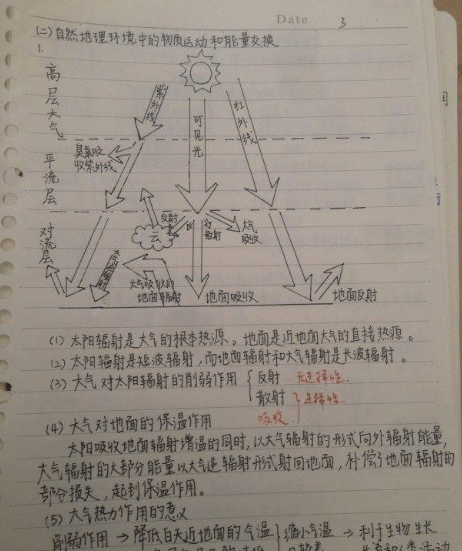 Date 3
(二)自然地理环境中的物质运动和能量交换
1.
高层大气
紫外线
可见光
红外线
臭氧吸
收紫外线
平流层
反射
散射
大气
吸收
云
对流层
大气吸收的
地面辐射
地面吸收
地面反射
(1) 太阳辐射是大气的根本热源。地面是近地面大气的直接热源。
(2) 太阳辐射是短波辐射,而地面辐射和大气辐射是长波辐射。
(3) 大气对太阳辐射的削弱作用 { 反射 无选择性
散射 } 选择性
吸收
(4) 大气对地面的保温作用
太阳吸收地面辐射增温的同时,以大气辐射的形式向外辐射能量,
大气辐射的大部分能量以大气逆辐射形式射回地面,补偿了地面辐射的
部分损失,起到保温作用。
(5) 大气热力作用的意义
削弱作用 → 降低白天近地面的气温 } 缩小气温 → 利于生物生长